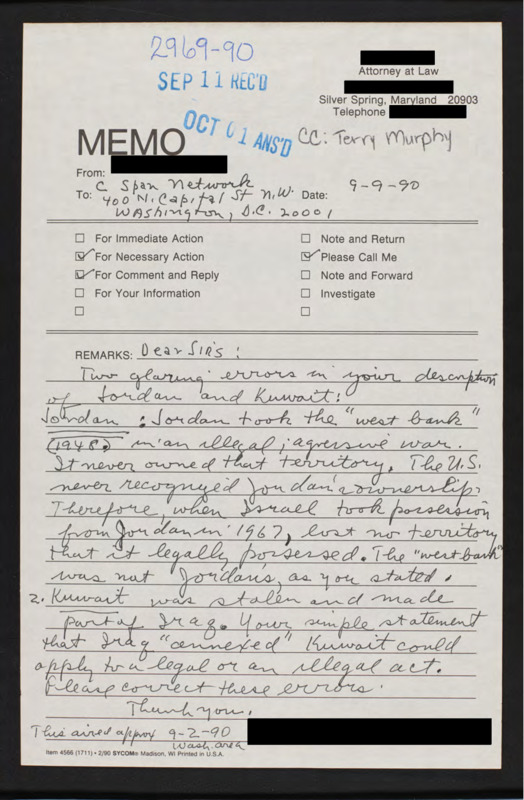 2969-90
SEP 11 REC'D
Attorney at Law
Silver Spring, Maryland 20903
Telephone
OCT 01 ANS'D
CC: Terry Murphy
MEMO
From:
To: C Span Network
400 N. Capital St N.W.
Washington, D.C. 20001
Date: 9-9-90
For Immediate Action
For Necessary Action
For Comment and Reply
For Your Information
Note and Return
Please Call Me
Note and Forward
Investigate
REMARKS: Dear Sirs:
Two glaring errors in your description
of Jordan and Kuwait:
Jordan: Jordan took the "west bank"
(1948) in an illegal, agressive war.
It never owned that territory. The U.S.
never recognized Jordan's ownership.
Therefore, when Israel took possession
from Jordan in 1967, lost no territory
that it legally possessed. The "west bank"
was not Jordan's, as you stated.
2. Kuwait was stolen and made
part of Iraq. Your simple statement
that Iraq "annexed" Kuwait could
apply to a legal or an illegal act.
Please correct these errors.
Thank you.
This aired approx 9-2-90
Wash. area
Item 4566 (1711) • 2/90 SYCOM® Madison, WI Printed in U.S.A.